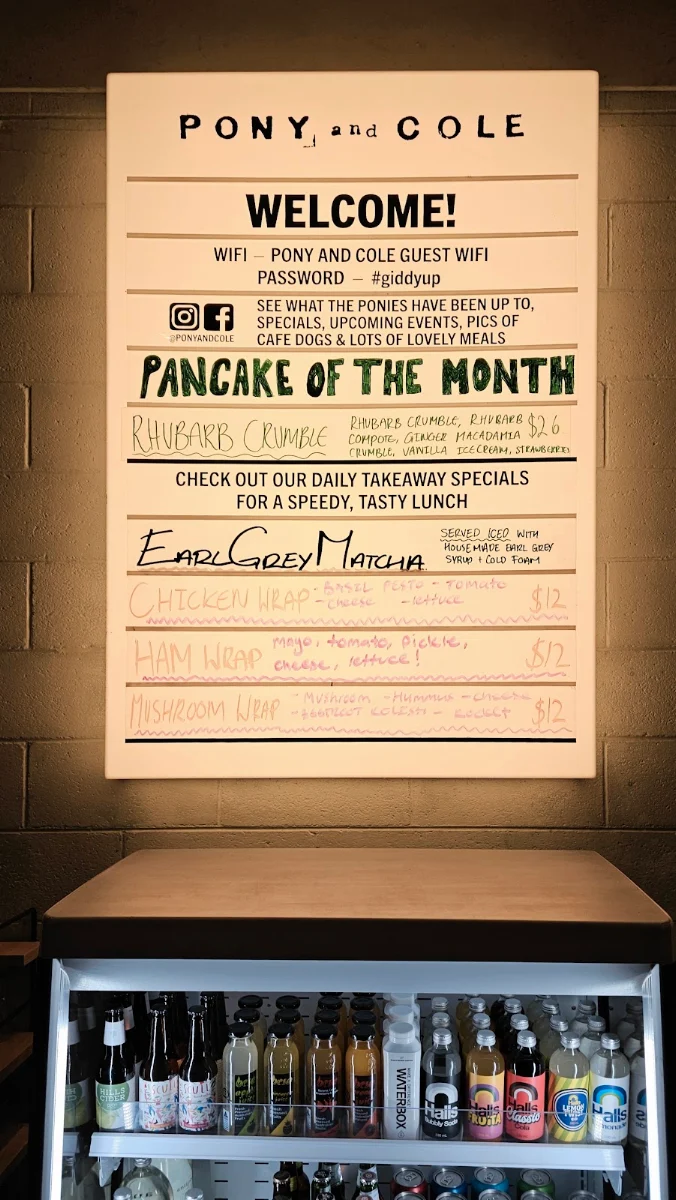 PONY and COLE
WELCOME!
WIFI – PONY AND COLE GUEST WIFI
PASSWORD – #giddyup
@PONYANDCOLE
SEE WHAT THE PONIES HAVE BEEN UP TO,
SPECIALS, UPCOMING EVENTS, PICS OF
CAFE DOGS & LOTS OF LOVELY MEALS
PANCAKE OF THE MONTH
RHUBARB CRUMBLE
RHUBARB CRUMBLE, RHUBARB
COMPOTE, GINGER MACADAMIA
CRUMBLE, VANILLA ICECREAM, STRAWBERRIES
$26
CHECK OUT OUR DAILY TAKEAWAY SPECIALS
FOR A SPEEDY, TASTY LUNCH
EARL GREY MATCHA
SERVED ICED WITH
HOUSEMADE EARL GREY
SYRUP + COLD FOAM
CHICKEN WRAP
- BASIL PESTO - TOMATO
- cheese - lettuce
$12
HAM WRAP
mayo, tomato, pickle,
cheese, lettuce!
$12
MUSHROOM WRAP
- MUSHROOM - HUMMUS - CHEESE
- RELISH - ROCKET
$12
HILLS
CIDER
WATERBOX
Halls
Halls
FRUITA
Halls
Classic
Cola
LEMON
Halls